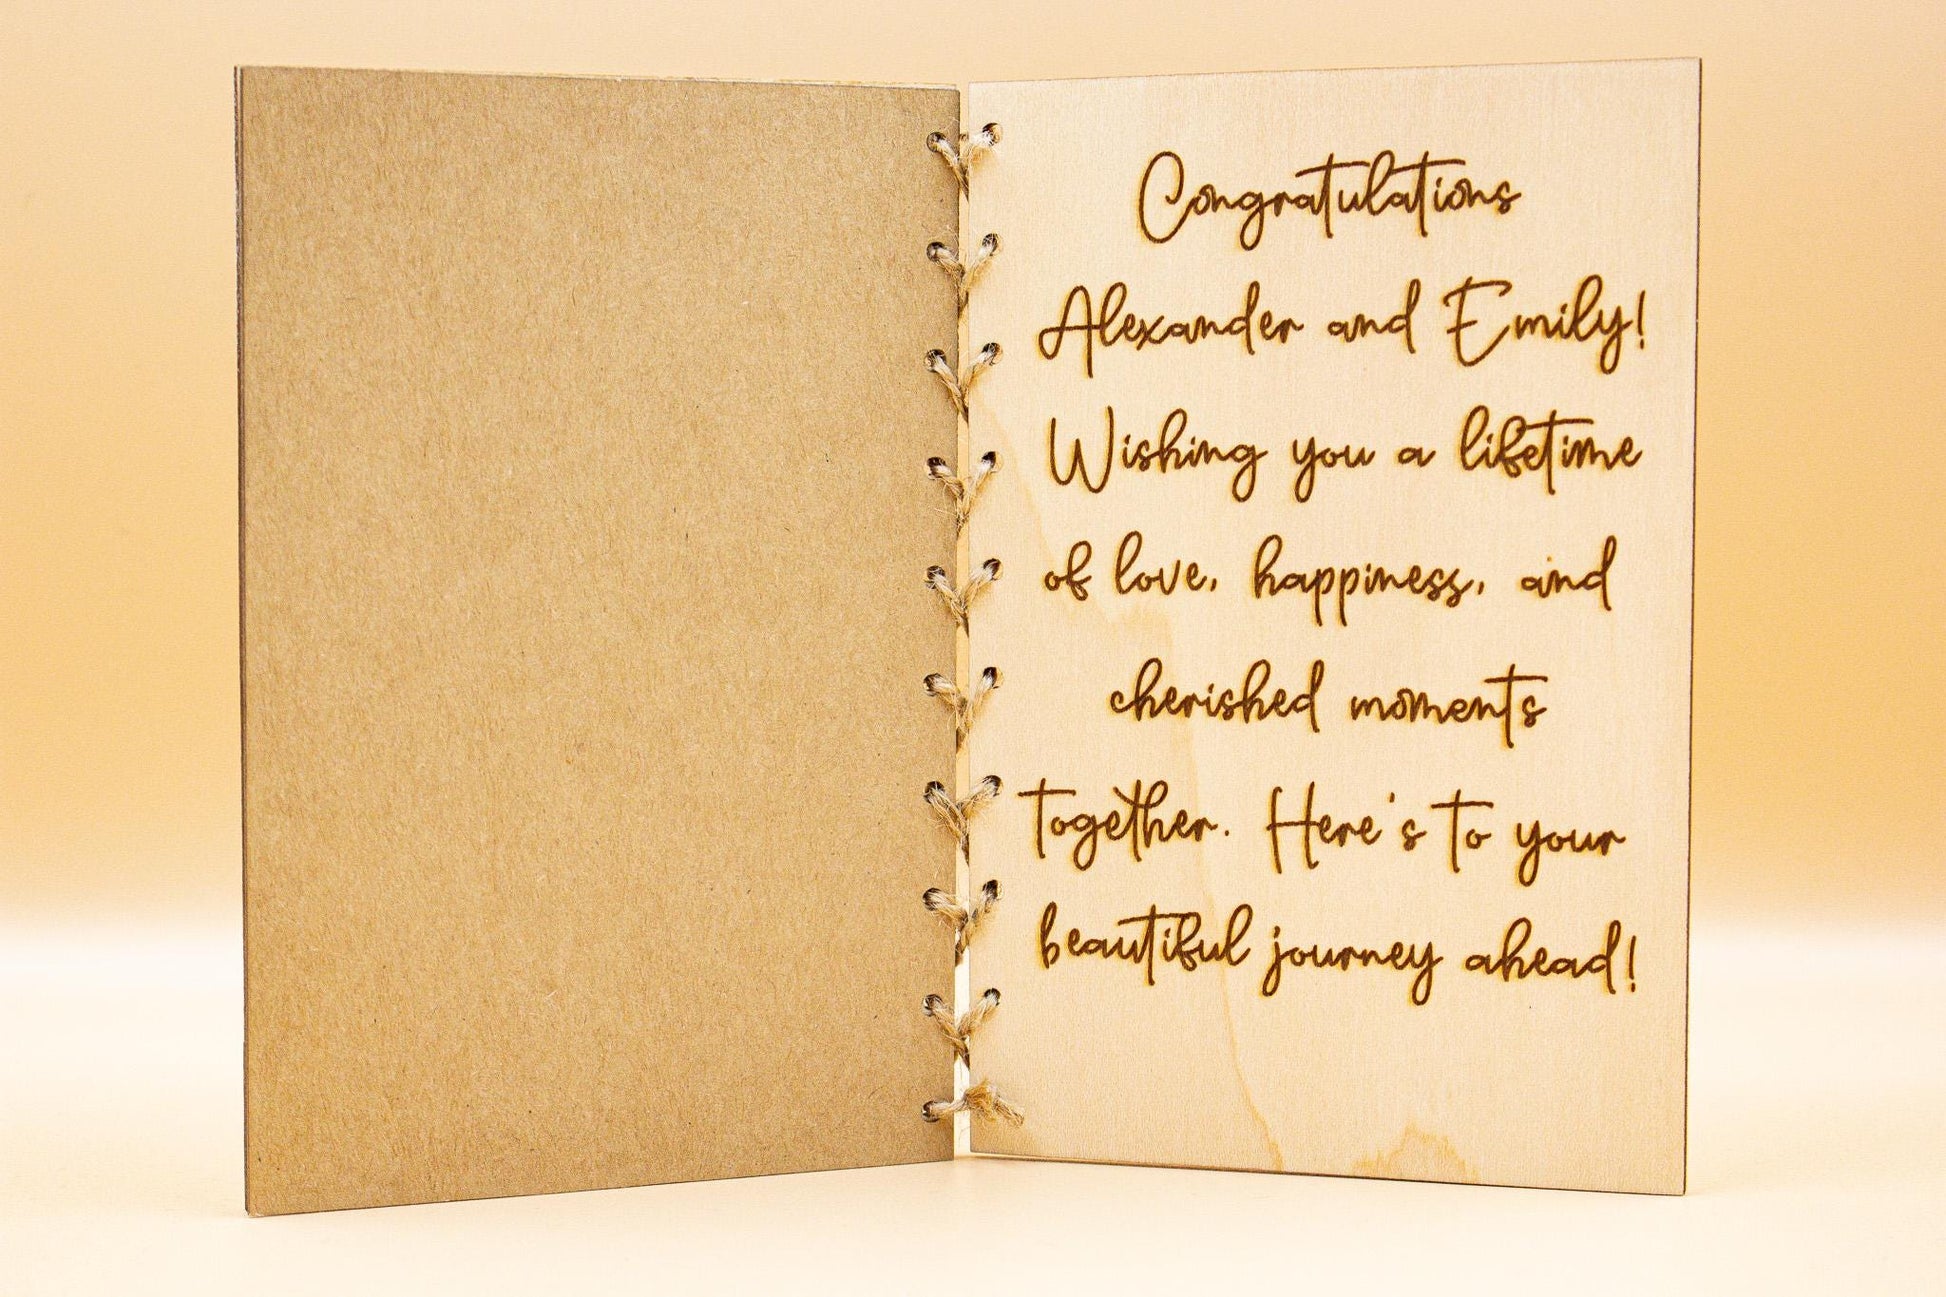 Congratulations
Alexander and Emily!
Wishing you a lifetime
of love, happiness, and
cherished moments
together. Here's to your
beautiful journey ahead!